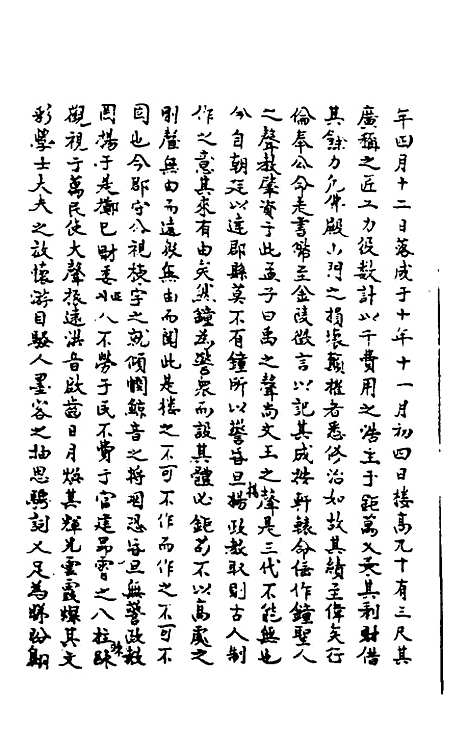 年四月十二日落成于十年十一月初四日楼高九十有三尺其
廣稱之匠工力役数計以千費用之浩主于鉅萬又炎其利財借
其餘力凢佛殿山門之損壞頽摧者悉修治如故其績主偉矣行
倫奉公命走書幣至金陵徴言以記其成按軒轅命伶作鐘聖人
之聲教肇資于此孟子曰禹之聲尚文王之聲是三代不能無也
今自朝廷以達郡縣莫不有鐘所以警昏旦揚政教取則古人制
作之意其來有由矣然鐘為警衆而設其體必鉅苟不以高處之
則聲無由而遠叚無由而聞此是楼之不可不作而作之不可不
固也今郡守公視棟宇之就傾憫鯨音之将堙恐昏旦無警政教
罔揚于是擲己財委以八不勞于民不費于官建昂霄之八柱
觀視于萬民使大聲振遠洪音啟齒日月煥其輝光雲霞燦其文
彩學士大夫之放懷游目騷人墨客之抽思騁詞又足為睇盼翺